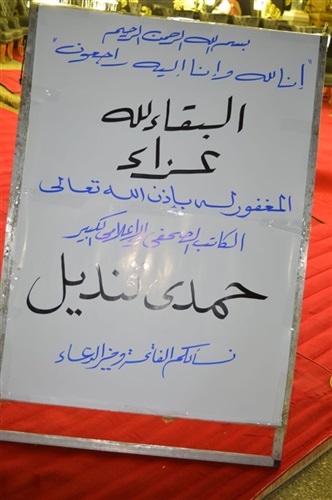 بسم الله الرحمن الرحيم
"إنا لله وإنا إليه راجعون"
البقاء لله
عزاء
المغفور له بإذن الله تعالى
الكاتب الصحفى والإعلامى الكبير
حمدى قنديل
نسألكم الفاتحة وخير الدعاء